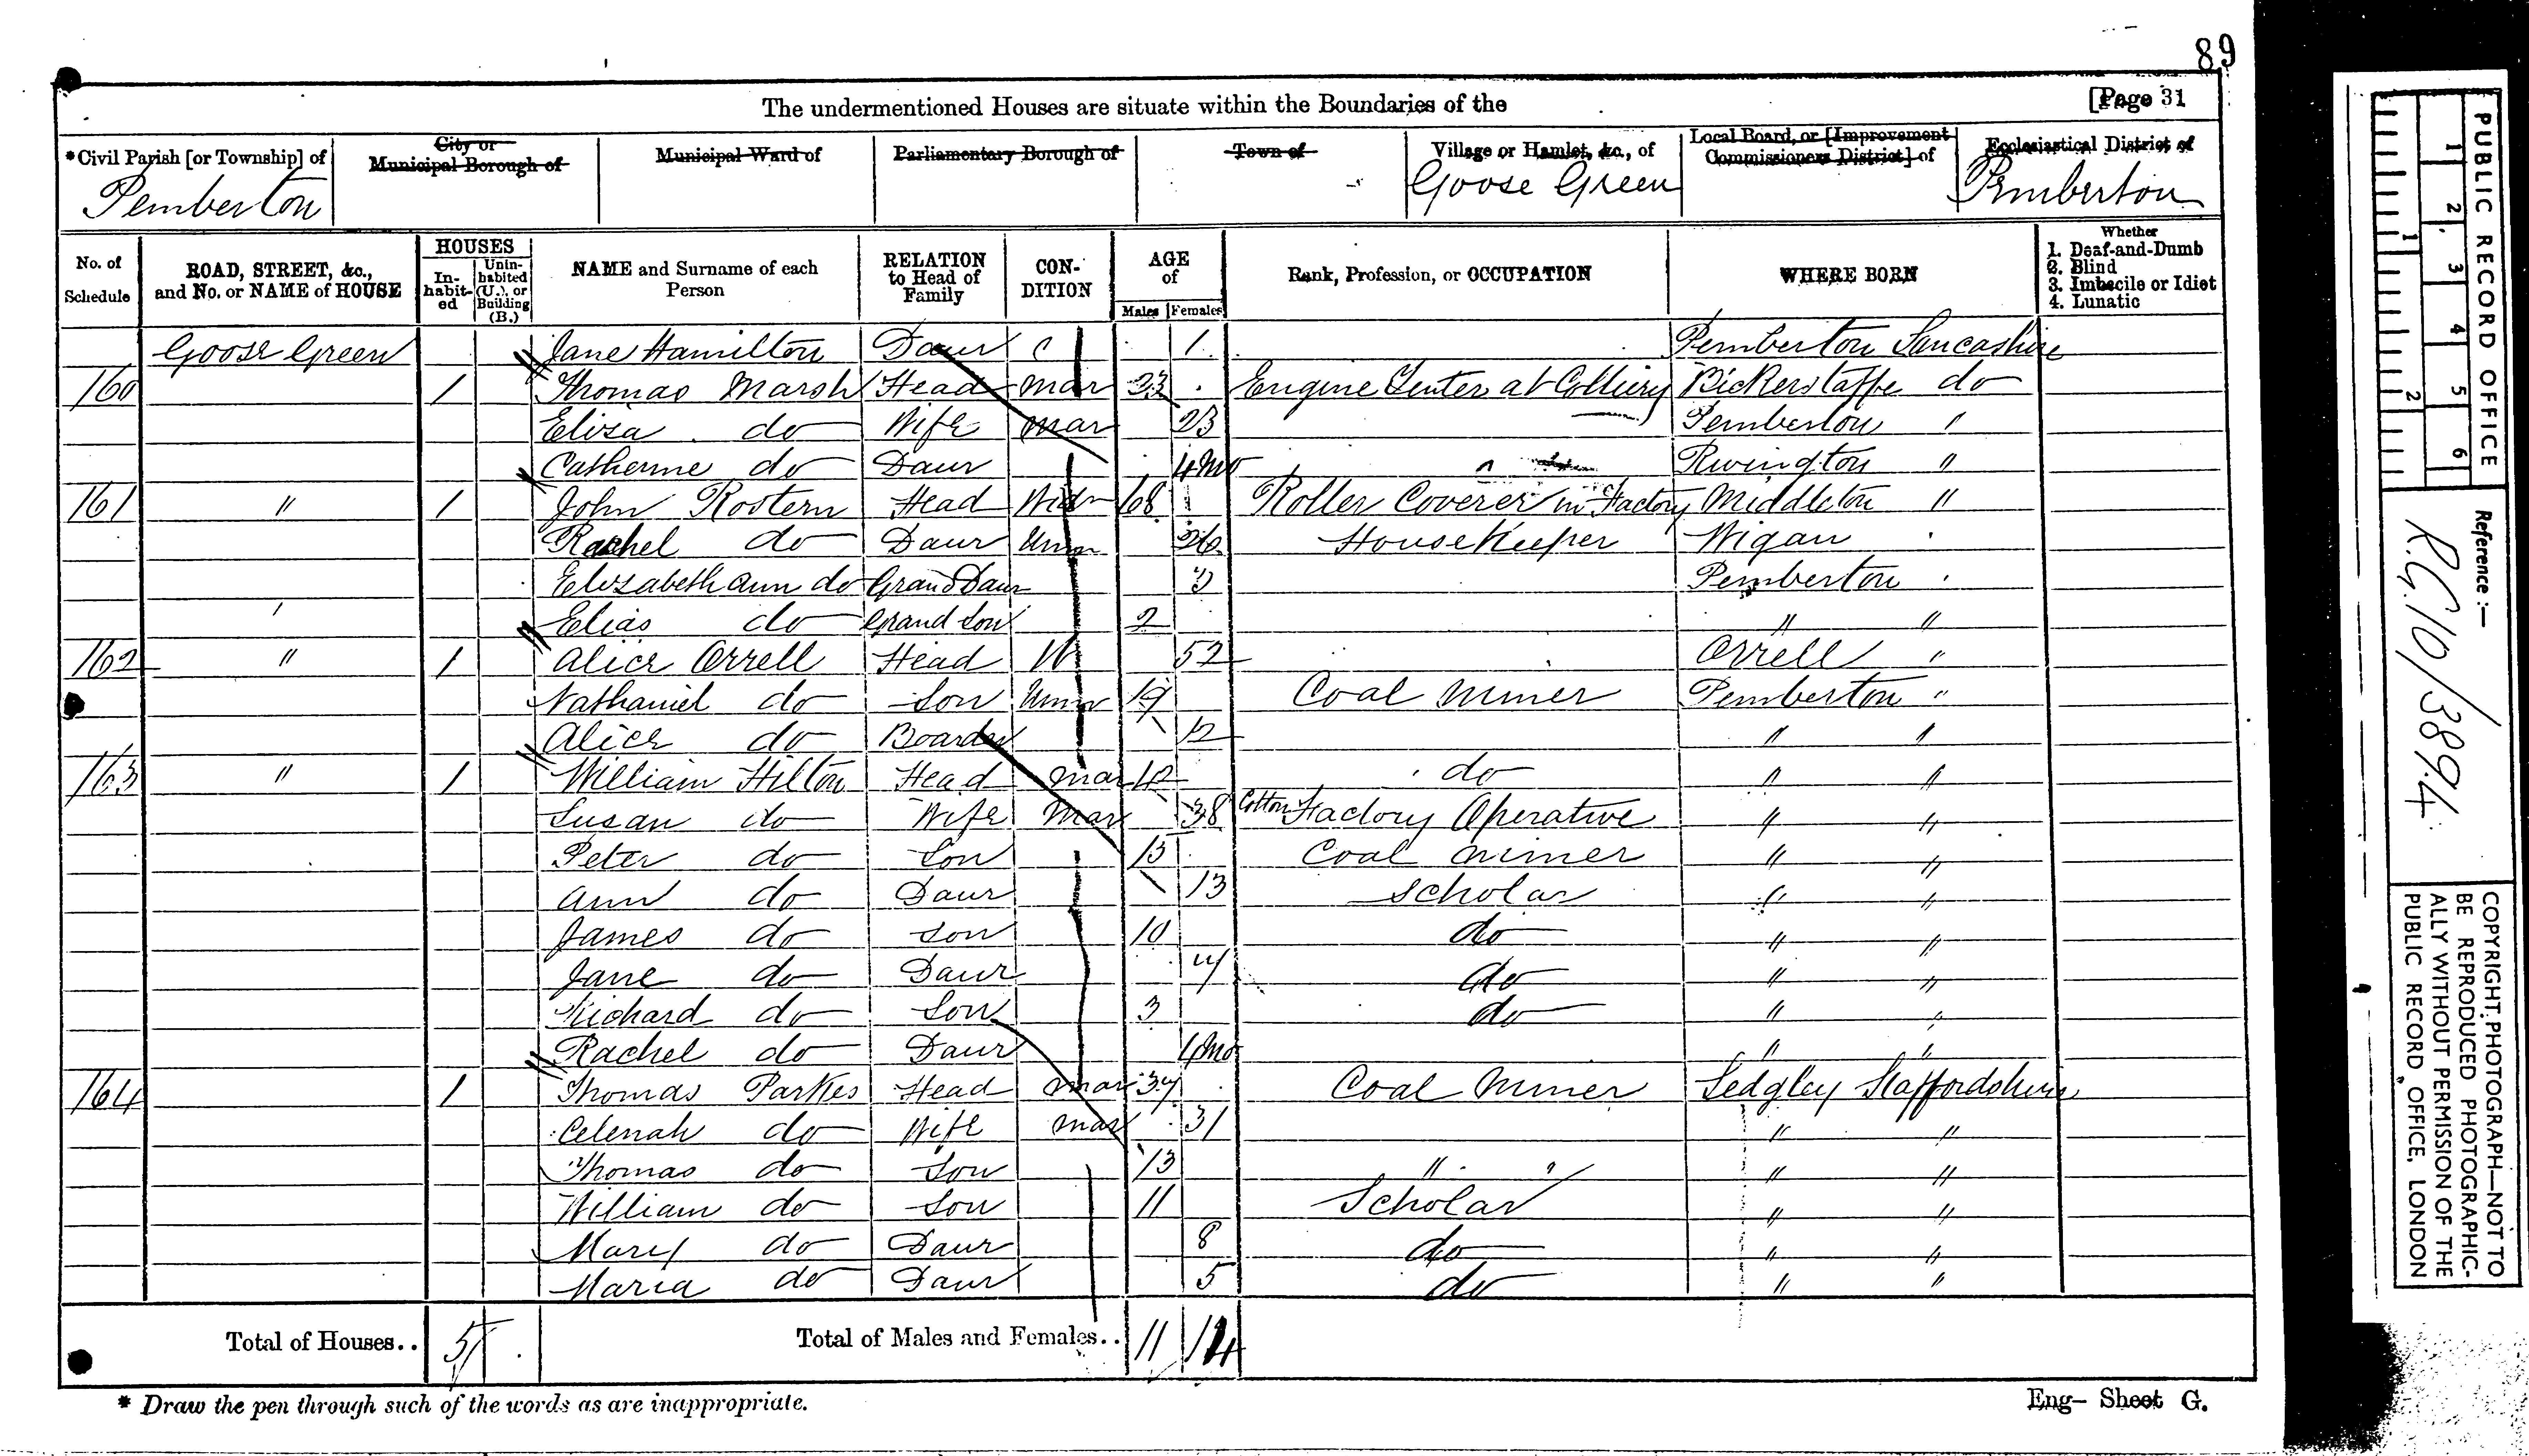 89
The undermentioned Houses are situate within the Boundaries of the [Page 31
*Civil Parish [or Township] of City or Municipal Borough of Municipal Ward of Parliamentary Borough of Town of Village or Hamlet, &c., of Local Board, or [Improvement Commissioners District] of Ecclesiastical District of
Pemberton Goose Green Pemberton
No. of Schedule ROAD, STREET, &c., and No. or NAME of HOUSE HOUSES In-habit-ed Unin-habited (U.), or Building (B.) NAME and Surname of each Person RELATION to Head of Family CON-DITION AGE of Males Females Rank, Profession, or OCCUPATION WHERE BORN Whether 1. Deaf-and-Dumb 2. Blind 3. Imbecile or Idiot 4. Lunatic
Goose Green Jane Hamilton Daur 1 Pemberton Lancashire
160 1 Thomas Marsh Head Mar 23 Engine Tenter at Colliery Bickerstaffe do
Eliza do Wife Mar 23 Pemberton "
Catherine do Daur 4Mo Rivington "
161 " 1 John Rostern Head Widr 68 Roller Coverer in Factory Middleton "
Rachel do Daur Unm 26 HouseKeeper Wigan
Elizabeth Ann do Grand Daur 3 Pemberton
Elias do Grand Son 2 " "
162 " 1 Alice Orrell Head W 52 Orrell "
Nathaniel do Son Unm 19 Coal Miner Pemberton "
Alice do Boarder 12 " "
163 " 1 William Hilton Head Mar 42 do " "
Susan do Wife Mar 38 Cotton Factory Operative " "
Peter do Son 15 Coal Miner " "
Ann do Daur 13 Scholar " "
James do Son 10 do " "
Jane do Daur 7 do " "
Richard do Son 3 do " "
Rachel do Daur 4Mo " "
164 1 Thomas Parkes Head Mar 37 Coal Miner Sedgley Staffordshire
Celenah do Wife Mar 31 " "
Thomas do Son 13 " " " "
William do Son 11 Scholar " "
Mary do Daur 8 do " "
Maria do Daur 5 do " "
Total of Houses.. 5 Total of Males and Females.. 11 14
* Draw the pen through such of the words as are inappropriate. Eng- Sheet G.
PUBLIC RECORD OFFICE
1 2 3 4 5 6
1 2
Reference :-
R.G. 10/3894
COPYRIGHT PHOTOGRAPH—NOT TO
BE REPRODUCED PHOTOGRAPHIC-
ALLY WITHOUT PERMISSION OF THE
PUBLIC RECORD OFFICE, LONDON